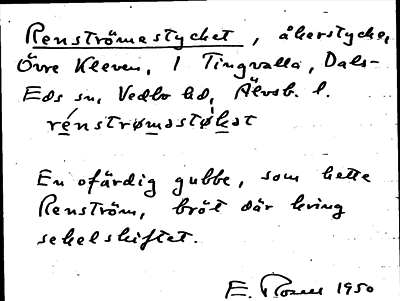 Renströmastycket, åkerstycke,
Övre Kleven, 1 Tingvalla, Dals-
Eds sn, Vedbo hd, Älvsb. l.
rénstrømastø̀kat
En ofärdig gubbe, som hette
Renström, bröt där kring
sekelskiftet.
E. Rosell 1950